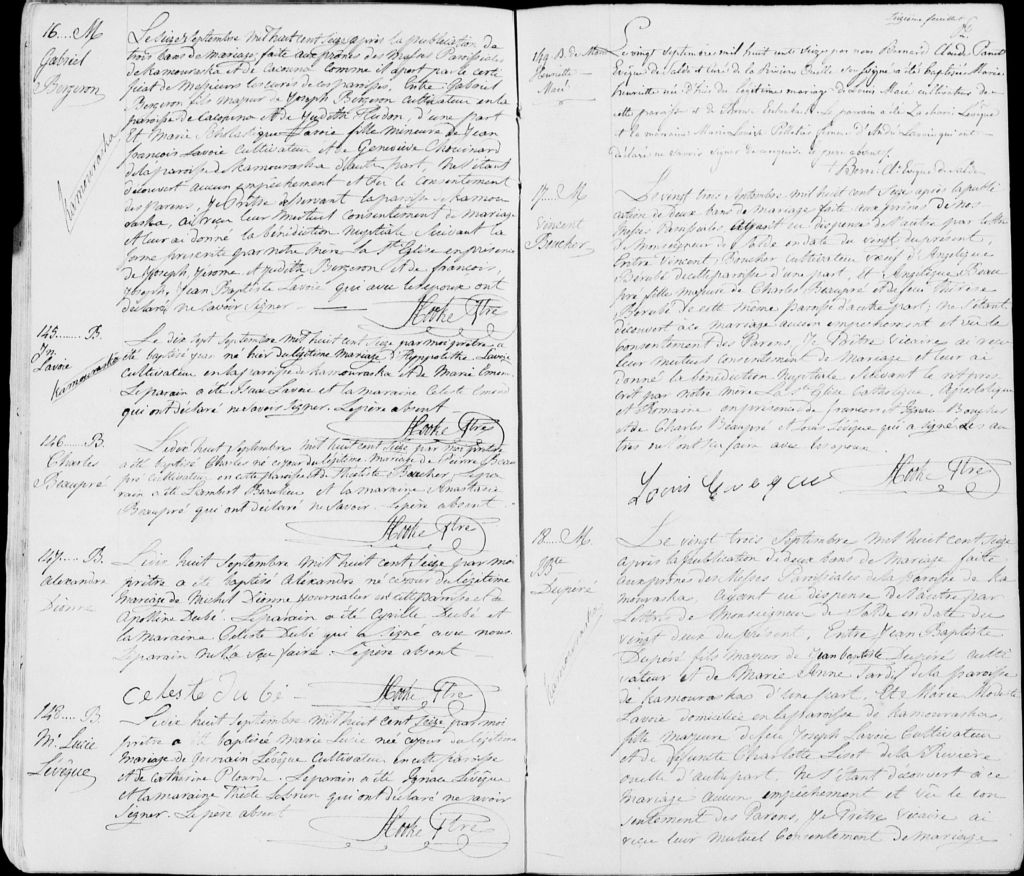 16.... M
Gabriel
Bergeron
Kamouraska
Le Seize Septembre mil huit cent Seize après la publication de
trois bans de mariage faite aux prônes des Messes Paroissiales
de Kamouraska et de Cacouna comme il apert par le certi
ficat de Messieurs les curés de ces paroisses, Entre Gabriel
Bergeron fils majeur de Joseph Bergeron Cultivateur en la
paroisse de Cacouna et de Judith Hudon, d'une part
Et Marie Scholastique Lavoie fille mineure de Jean
françois Lavoie Cultivateur et de Geneviève Chouinard
de la paroisse de Kamouraska d'autre part, Ne s'étant
découvert aucun empêchement et vu le consentement
des Parens, Je Prêtre déservant la paroisse de Kamou
raska, ai reçu leur mutuel consentement de mariage
et leur ai donné la bénédiction nuptiale Suivant la
forme presente par notre mère la Ste Eglise en présence
de Joseph, Jerome et Judith Bergeron et de françois,
Joseph, Jean Baptiste Lavoie qui avec les époux ont
déclaré ne savoir signer.
Hooke Ptre
145....... B.
Jn
Lavoie
Kamouraska
Le dix Sept Septembre mil huit cent Seize par moi prêtre a
été baptisé Jean né hier du légitime Mariage d'Hyppolithe Lavoie
Cultivateur en la paroisse de Kamouraska et de Marie Emon.
Le parain a été Isaac Lavoie et la maraine Celeste Emond
qui ont déclaré ne savoir signer. Le père absent
Hooke Ptre
146...... B.
Charles
Beaupré
Le dix huit Septembre mil huit cent Seize par moi prêtre
a été baptisé Charles né ce jour du légitime Mariage de Pierre Beau
pré Cultivateur en cette paroisse et de Théotiste Boucher. Le pa
rain a été Lambert Beaulieu et la maraine Anastasie
Beaupré qui ont déclaré ne savoir. Le père absent
Hooke Ptre
147..... B.
Alexandre
Dionne
Le dix huit Septembre mil huit cent Seize par moi
prêtre a été baptisé Alexandre né ce jour du légitime
Mariage de Michel Dionne Journalier en cette paroisse et de
Apolline Dubé. Le parain a été Cyrille Dubé et
la maraine Celeste Dubé qui a Signé avec nous
Le parain ne l'a sçu faire. Le père absent
celeste dubé
Hooke Ptre
148..... B.
Me Lucie
Levêque
Le dix huit Septembre mil huit cent Seize par moi
prêtre a été baptisée Marie Lucie née ce jour du légitime
Mariage de Germain Levêque Cultivateur en cette paroisse
et de Catherine Plourde. Le parain a été Ignace Levêque
et la maraine Thècle Lebrun qui ont déclaré ne savoir
signer. Le père absent
Hooke Ptre
Seizième feuillet
149 B. de Marie
Henriette
Macé
Le vingt Septembre mil huit cent Seize par nous Bernard Claude Panet
Evêque de Saldes et curé de la Rivière Ouelle soussigné a été baptisée Marie
henriette née d'hier du légitime mariage de Macé cultivateur de
cette paroisse et de Le parain a été Zacharie Levêque
et la maraine Marie Louise Pelletier femme d'André qui ont
déclaré ne savoir signer de ce enquis. le père absent.
+ Bern. Cl. évêque de Saldes
17..... M
Vincent
Boucher
Le vingt trois Septembre mil huit cent Seize après la publi
cation de deux bans de mariage faite aux prônes de nos
Messes Paroissiales ayant eu dispense de l'autre par lettre
de Monseigneur de Salde en date du vingt du présent,
Entre Vincent Boucher Cultivateur veuf d'Angelique
Bérubé de cette paroisse d'une part, et Angelique Beau
pré, fille majeure de Charles Beaupré et de feu Thérèse
Bérubé de cette même paroisse d'autre part; ne s'étant
découvert à ce mariage aucun empêchement et vu le
consentement des Parens, Je Prêtre Vicaire ai reçu
leur mutuel consentement de Mariage et leur ai
donné la bénédiction Nuptiale Suivant le rit pres
crit par notre Mère La Ste Eglise Catholique, Apostolique
et Romaine en présence de francois et Ignace Boucher
et de Charles Beaupré et Louis Levêque qui a signé Les au
tres ne l'ont pu faire avec les epoux.
Louis Leveque
Hooke Ptre
18.... M.
J Bte
Duperé
Kamouraska
Le vingt trois Septembre mil huit cent Seize
après la publication de deux bans de Mariage faite
aux prônes des Messes Paroissiales de la paroisse de Ka
mouraska, ayant eu dispense de l'autre par
Lettres de Monseigneur de Salde en date du
vingt deux du présent, Entre Jean Baptiste
Duperé fils majeur de Jean baptiste Duperé culti
vateur et de Marie Anne Tardif de la paroisse
de Kamouraska d'une part, Et Marie Modeste
Lavoie domiciliée en la paroisse de Kamouraska,
fille majeure de feu Joseph Lavoie Cultivateur
et de defunte Charlotte Lizot de la Rivière
ouelle d'autre part. Ne s'étant découvert à ce
mariage aucun empêchement et vu le con
sentement des Parens, Je Prêtre Vicaire ai
reçu leur mutuel Consentement de Mariage